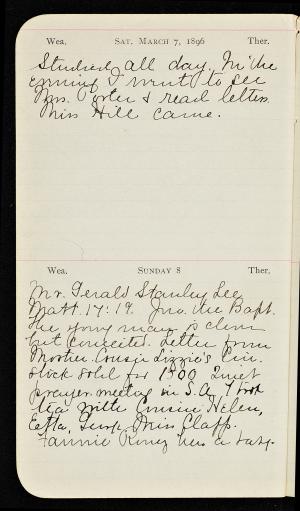 Wea. SAT. MARCH 7, 1896 Ther.
Studied all day. In the
evening I went to see
Mrs. Porter & read letters.
Miss Hill came.
Wea. SUNDAY 8 Ther.
Mr. Gerald Stanley Lee
Matt. 17:19. Jno. the Bapt.
The young man is clever
but conceited. Letter from
Mother. Cousin Lizzie's Cin.
stock sold for 1300 Quiet
prayer meeting in S.A. I took
tea with Cousin Helen,
Miss Clapp.
Fannie has a